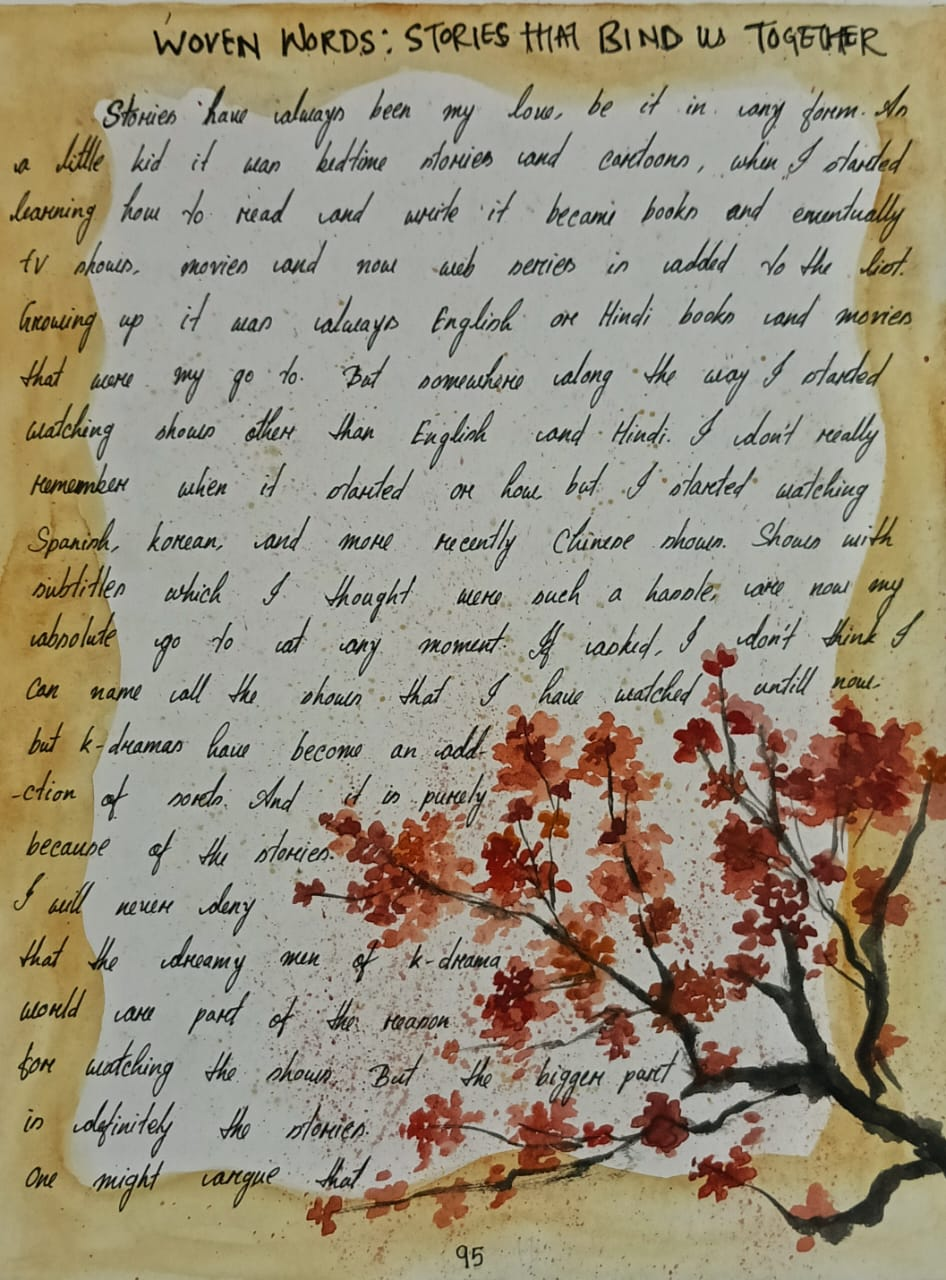 WOVEN WORDS: STORIES THAT BIND US TOGETHER
Stories have always been my love, be it in any form. As
a little kid it was bedtime stories and cartoons, when I started
learning how to read and write it became books and eventually
tv shows, movies and now web series is added to the list.
Growing up it was always English or Hindi books and movies
that were my go to. But somewhere along the way I started
watching shows other than English and Hindi. I don't really
remember when it started or how but I started watching
Spanish, korean, and more recently Chinese shows. Shows with
subtitles which I thought were such a hassle, are now my
absolute go to at any moment. If asked, I don't think I
can name all the shows that I have watched untill now.
but k-dramas have become an add-
-ction of sorts. And it is purely
because of the stories.
I will never deny
that the dreamy men of k-drama
world are part of the reason
for watching the shows. But the bigger part
is definitely the stories.
One might argue that
95